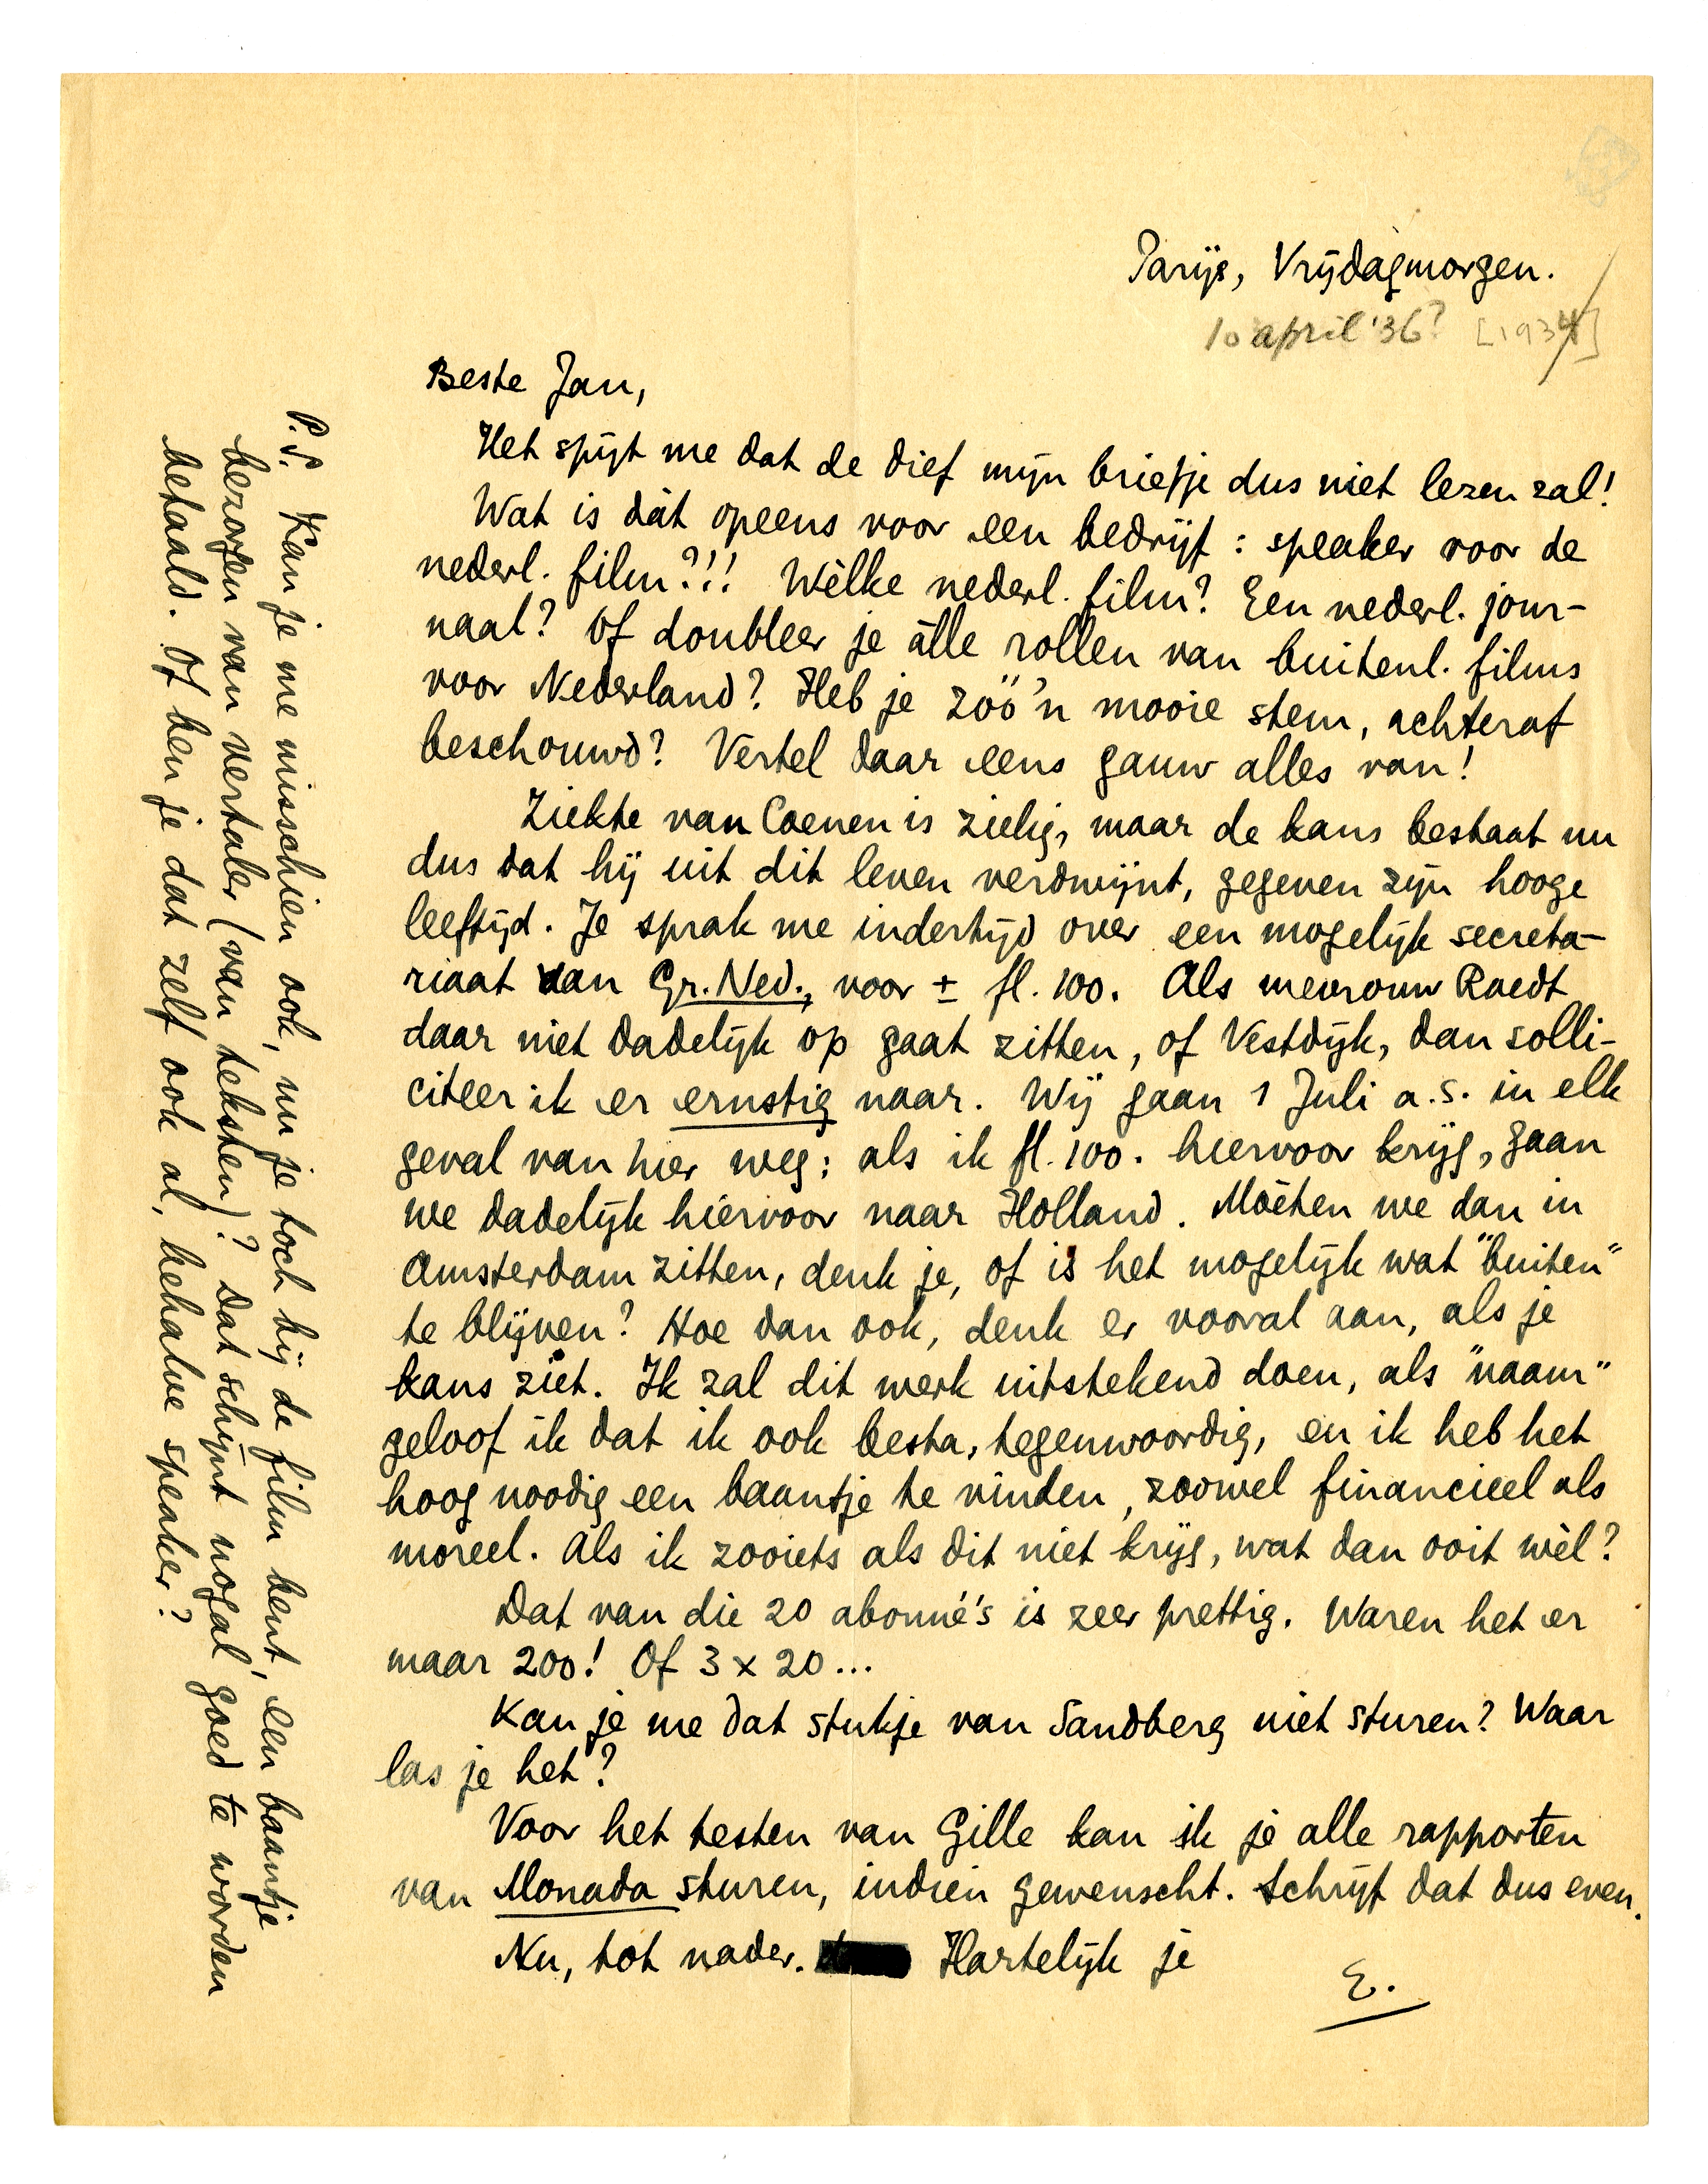 Parijs, Vrijdagmorgen.
10 april '36? [1934]
Beste Jan,
Het spijt me dat de dief mijn briefje dus niet lezen zal!
Wat is dàt opeens voor een bedrijf: speaker voor de
nederl. film?!! Wèlke nederl. film? Een nederl. jour-
naal? Of doubleer je àlle rollen van buitenl. films
voor Nederland? Heb je zóó'n mooie stem, achteraf
beschouwd? Vertel daar eens gauw alles van!
Ziekte van Coenen is zielig, maar de kans bestaat nu
dus dat hij uit dit leven verdwijnt, gegeven zijn hooge
leeftijd. Je sprak me indertijd over een mogelijk secreta-
riaat van Gr. Ned., voor ± fl. 100. Als mevrouw Roedt
daar niet dadelijk op gaat zitten, of Vestdijk, dan solli-
citeer ik er ernstig naar. Wij gaan 1 Juli a.s. in elk
geval van hier weg; als ik fl. 100. hiervoor krijg, gaan
we dadelijk hiervoor naar Holland. Moèten we dan in
Amsterdam zitten, denk je, of is het mogelijk wat "buiten"
te blijven? Hoe dan ook, denk er vooral aan, als je
kans ziet. Ik zal dit werk uitstekend doen, als "naam"
geloof ik dat ik ook besta, tegenwoordig, en ik heb het
hoog noodig een baantje te vinden, zoowel financieel als
moreel. Als ik zooiets als dit niet krijg, wat dan ooit wèl?
Dat van die 20 abonné's is zeer prettig. Waren het er
maar 200! Of 3 x 20...
Kan je me dat stukje van Sandberg niet sturen? Waar
las je het?
Voor het testen van Gille kan ik je alle rapporten
van Monada sturen, indien gewenscht. Schrijf dat dus even.
Nu, tot nader. Hartelijk je
E.
P.S. Kan je me misschien ook, nu je toch bij de film bent, een baantje
bezorgen van vertaler (van teksten)? Dat schijnt nogal goed te worden
betaald. Of ben je dat zelf ook al, behalve speaker?